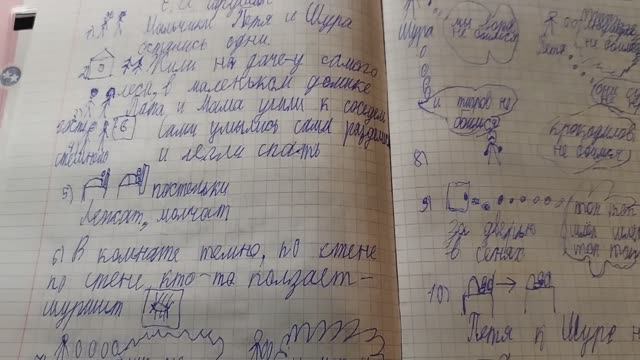 Мальчики Петя и Шура
остались одни.
Жили на даче у самого
леса, в маленьком домике
Папа и Мама ушли к соседям
6
Сами умылись сами раздели
и легли спать
5)
постельки
Лежат, молчат
6) В комнате темно, по стене
по стене кто-то ползает -
шуршит
Шура
мы
не боимся
и тигров не
боимся
8)
Петя
не
крокодилов
не боимся
9)
За дверью
в сенях
топ
топ
10)
Петя к Шура